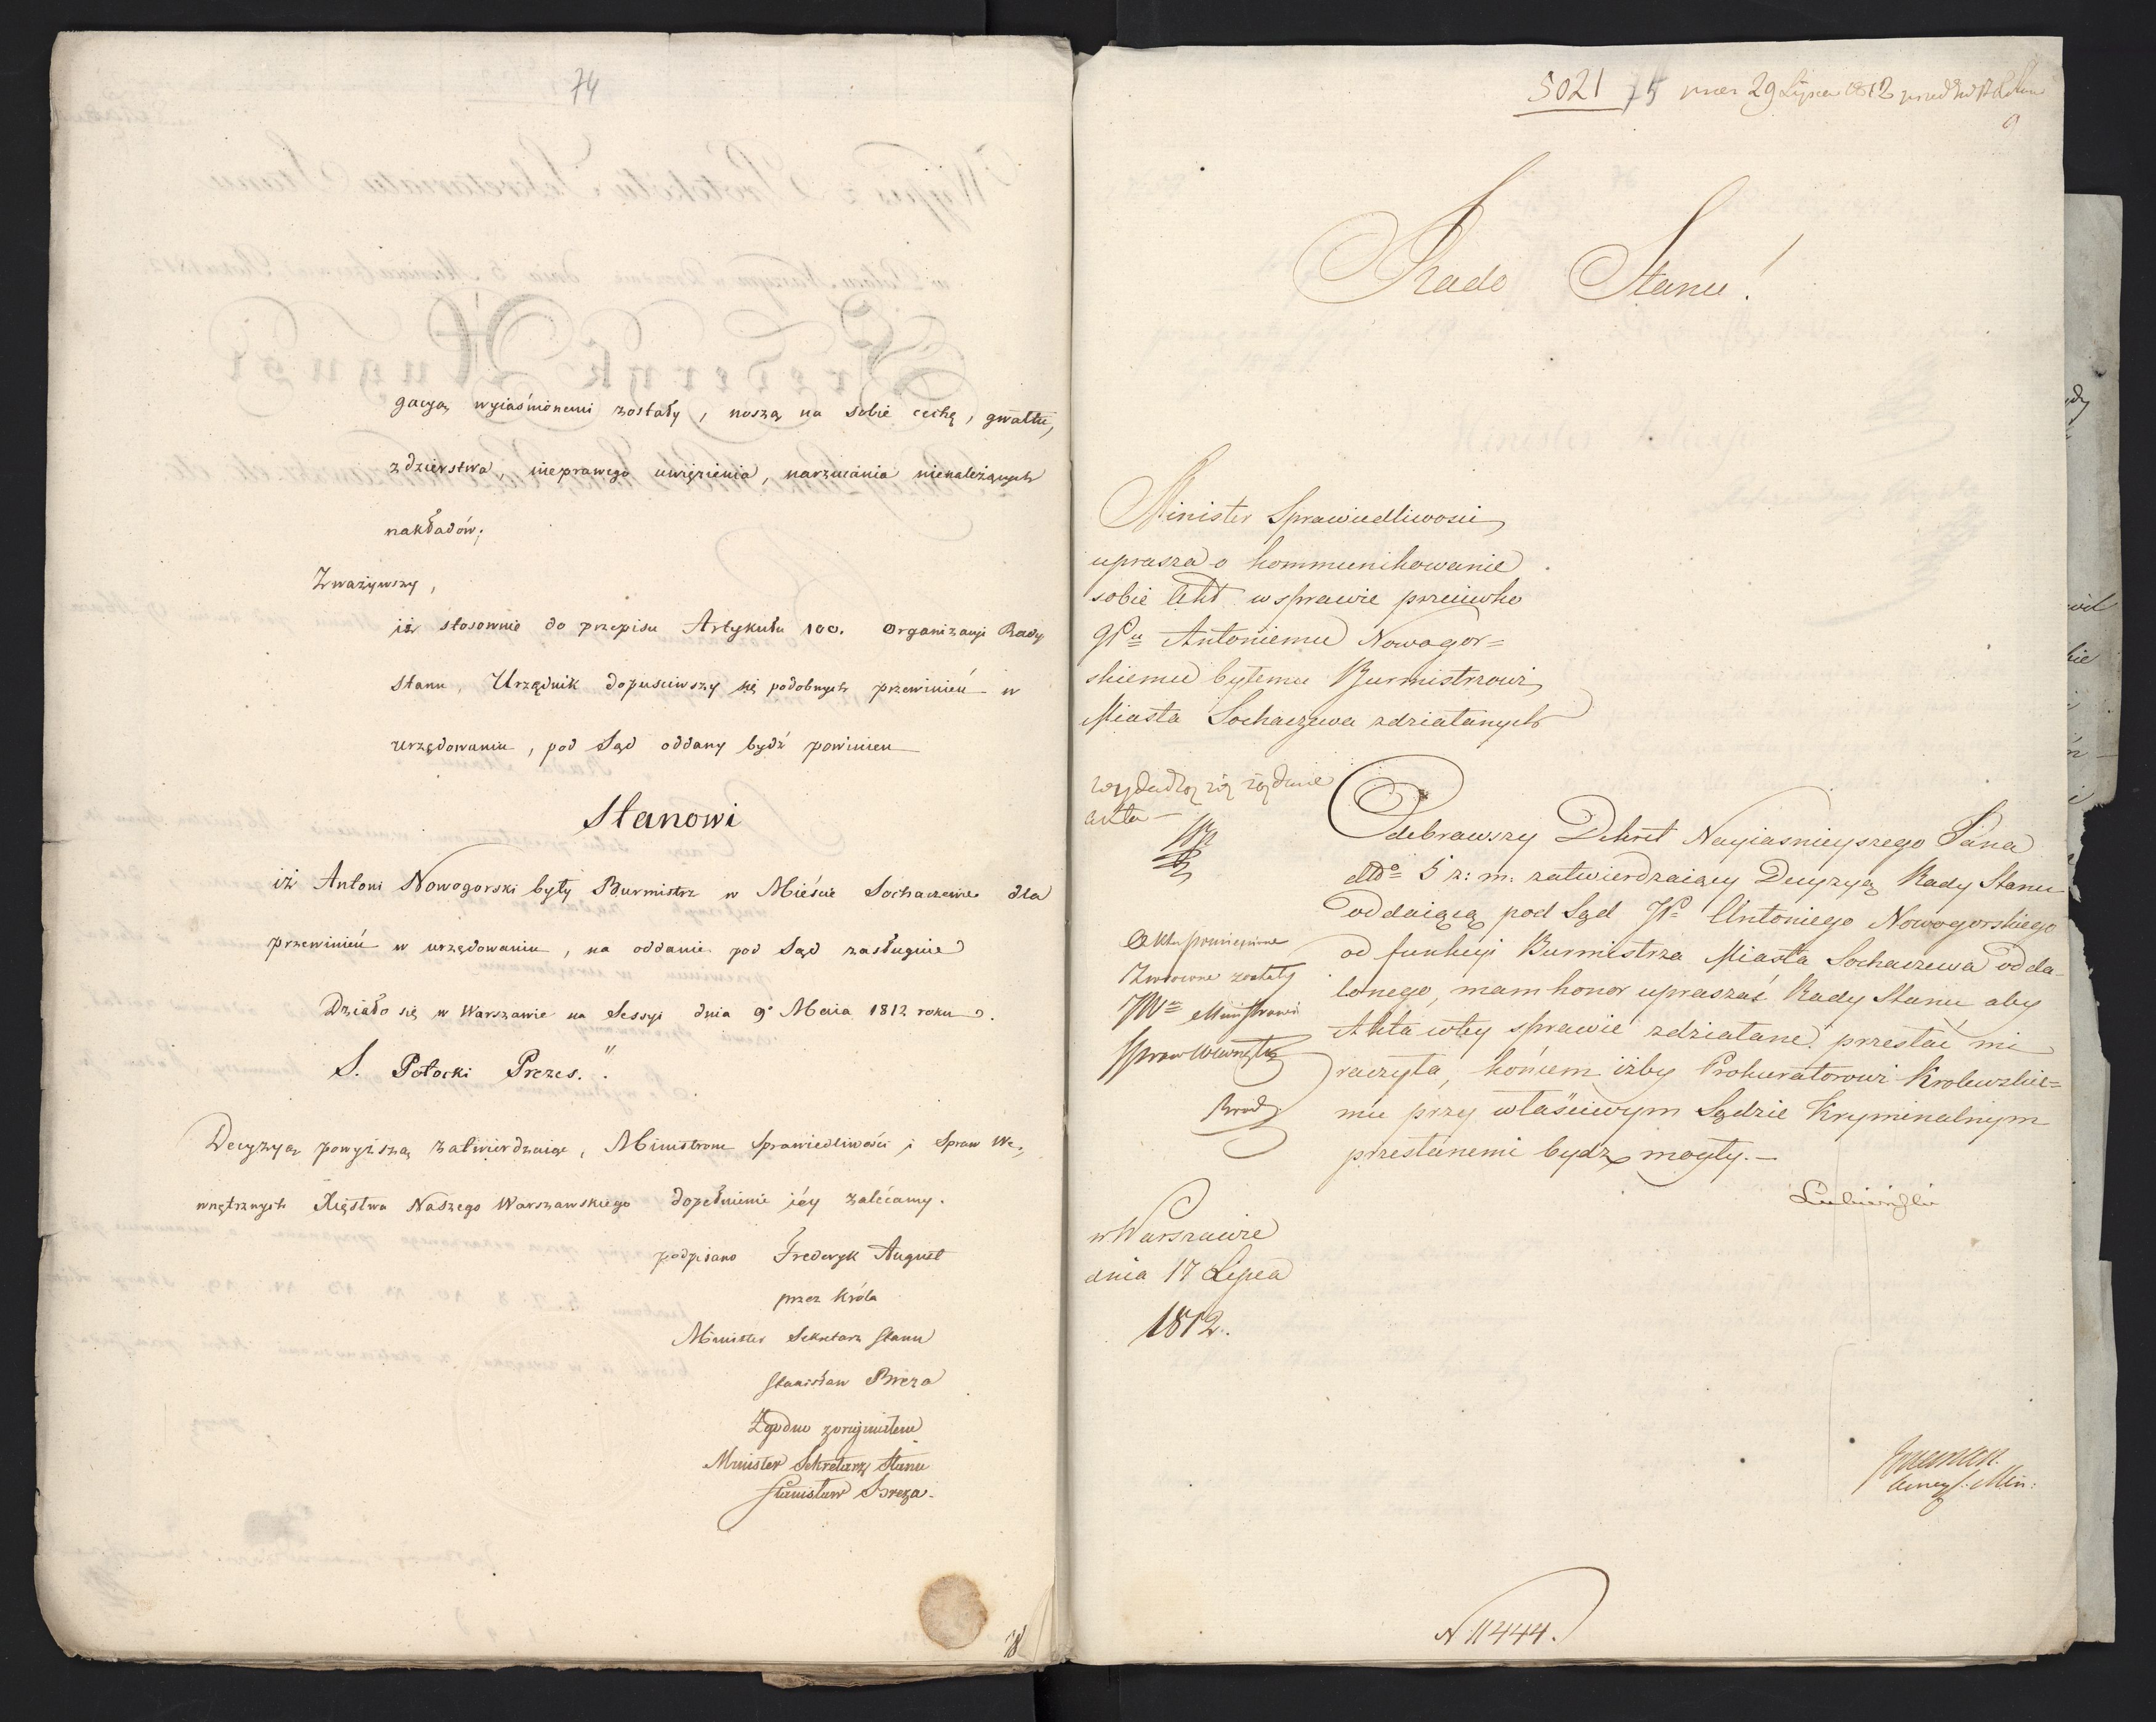 74
gacyą wyiaśnionemi zostały, noszą na sobie cechę, gwałtu,
zdzierstwa, nieprawego uwięzienia, narzucania nienależących
nakładów;
Zważywszy,
iż stosownie do przepisu Artykułu 100. Organizacyi Rady
Stanu, Urzędnik dopusciwszy się podobnych przewinień w
urzędowaniu, pod Sąd oddany bydź powinien
Stanowi
iż Antoni Nowogorski były Burmistrz w Mieście Sochaczewie dla
przewinień w urzędowaniu, na oddanie pod Sąd zasługuie
Działo się w Warszawie na Sessyi dnia 9º Maia 1812 roku.
S. Potocki Prezes.
Decyzyą powyższą zatwierdzaiąc, Ministrom Sprawiedliwości i Spraw We-
wnętrznych Xięstwa Naszego Warszawskiego dopełnienie iéy zalécamy.
podpisano Frederyk August
przez Króla
Minister Sekretarz Stanu
Stanisław Breza
Zgodno z oryginałem
Minister Sekretarz Stanu
Stanisław Breza.
5021 75 29 Lipca 1812
Rado Stanu!
Minister Sprawiedliwosci
uprasza o kommunikowanie
sobie Akt w sprawie przeciwko
JPu Antoniemu Nowogor=
skiemu bytemu Burmistrzowi
Miasta Sochaczewa zdziałanych
wydadzą się żądane
akta —
Odebrawszy Dekret Nayiasnieyszego Pana
ddº 5 z: m: zatwierdzaiący Decyzyą Rady Stanu
oddaiącą pod Sąd JP Antoniego Nowogorskiego
od funkcyi Burmistrza Miasta Sochaczewa odda-
lonego, mam honor upraszać Rady Stanu aby
Akta w tey sprawie zdziałane przesłać mi
raczyła, końcem iżby Prokuratorowi Krolewskie=
mu przy właściwym Sądzie Kryminalnym
przesłanemi bydź mogły. —
Lubieński
Akta pomienione
zwrócone zostały
JWu Ministrowi
Spraw Wewnętrz
w Warszawie
dnia 17 Lipca
1812.
N 11444.